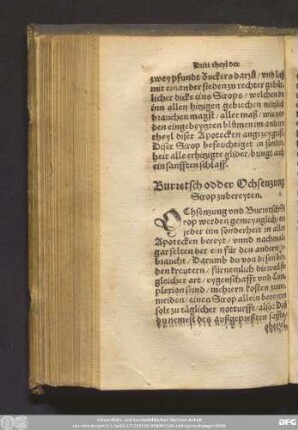 Dritt theyl der
zwey pfundt Zuckers darzů / vnd laß
mit einander sieden zu rechter gebür
licher dicke eins Sirops / welchen du
inn allen hitzigen gebrechen nützlich
brauchen magst / aller maß / wie von
den eingebeyzten blůmen im andern
theyl diser Apotecken angezeygt.
Diser Sirop befeuchtiget in sonder
heit alle erhitzigte glider / bringt auch
ein sanfften schlaff.
Burretsch odder Ochsenzung
Sirop zubereyten.
OChsenzung vnd Burretsch Si
rop werden gemeynglich
jeder inn sonderheit in allen
Apotecken bereyt / vnnd nachmals
gar selten der ein für den andern ge
braucht / Darumb du von disen bey
den kreutern / fürnemlich dieweil sie
gleicher art / eygenschafft vnd Com
plexion seind / mehrern kosten zuuer
meiden / einen Sirop allein bereyten
solt zu täglicher notturfft / also: Daß
du nemest des außgepreßten saffts
DFG